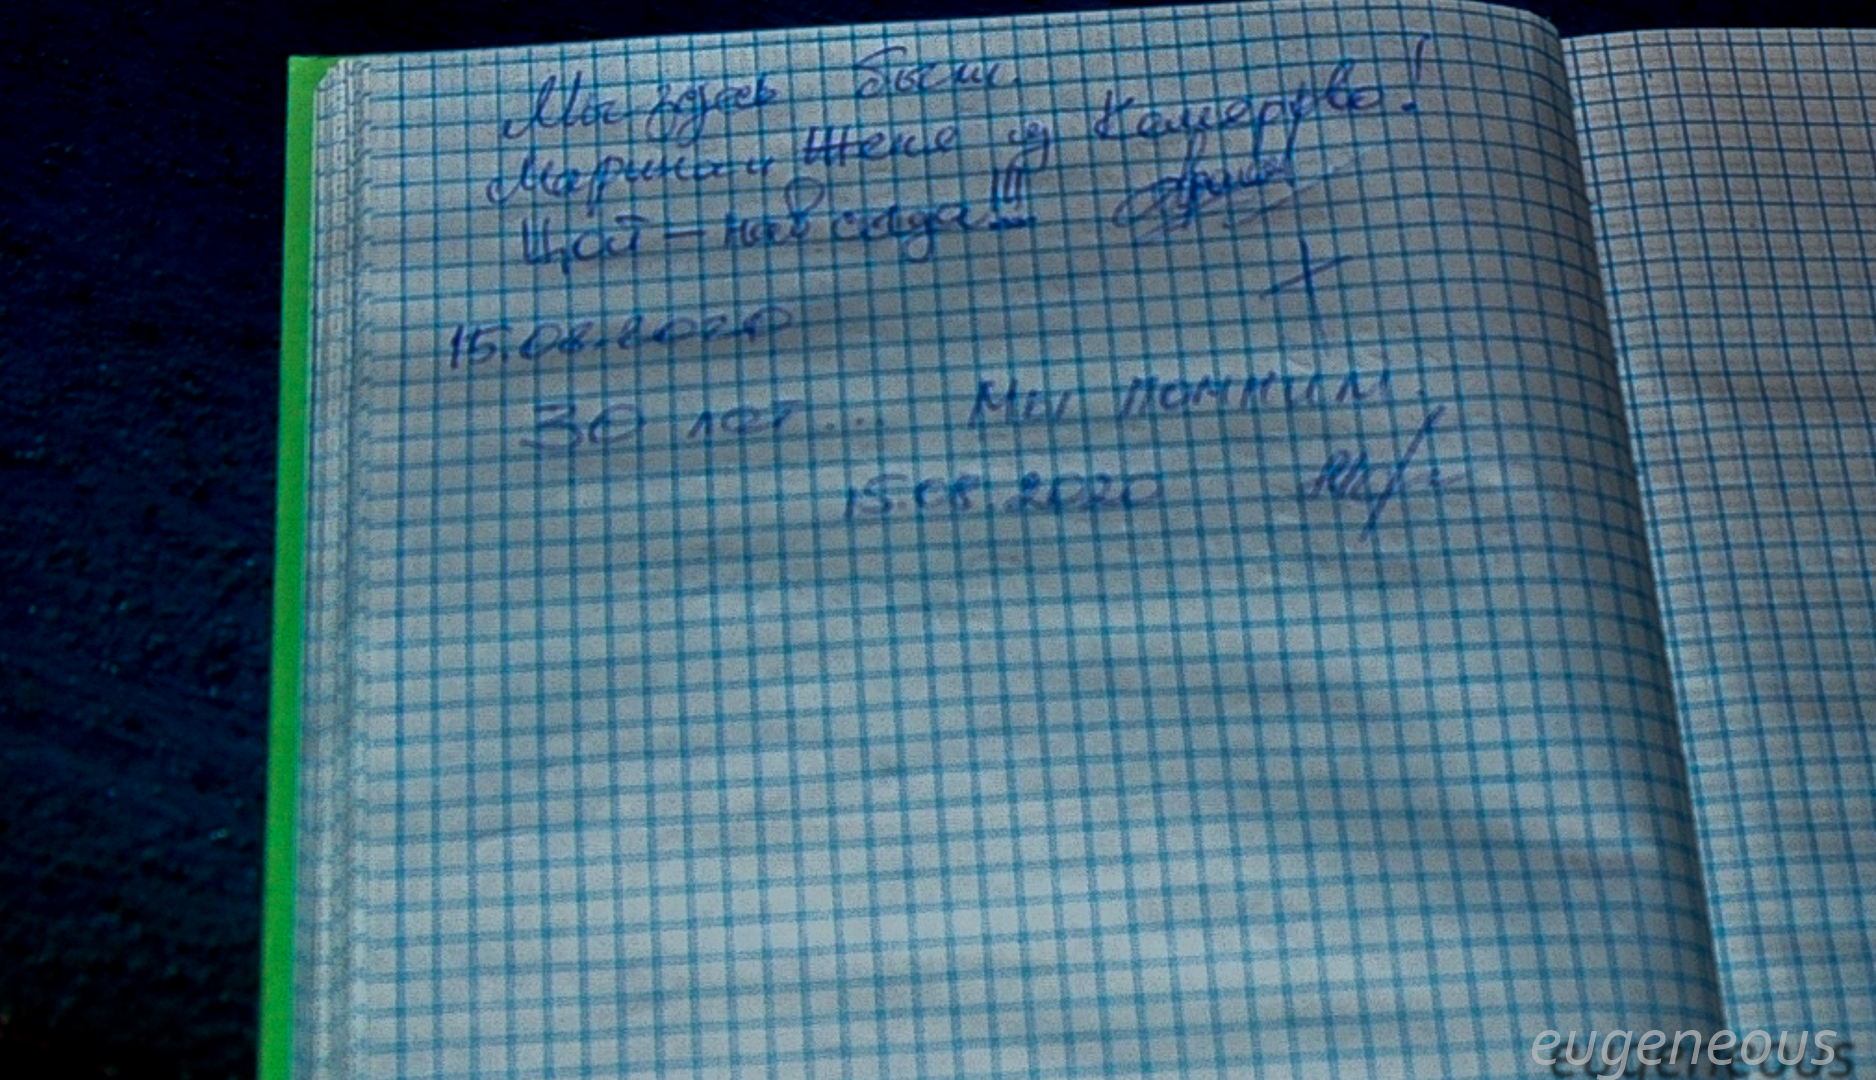 Мы здесь были.
Марина и Женя из Кемерово!
Цой - наше всегда!!!
15.08.2020
30 лет... Мы помним.
15.08.2020
eugeneous